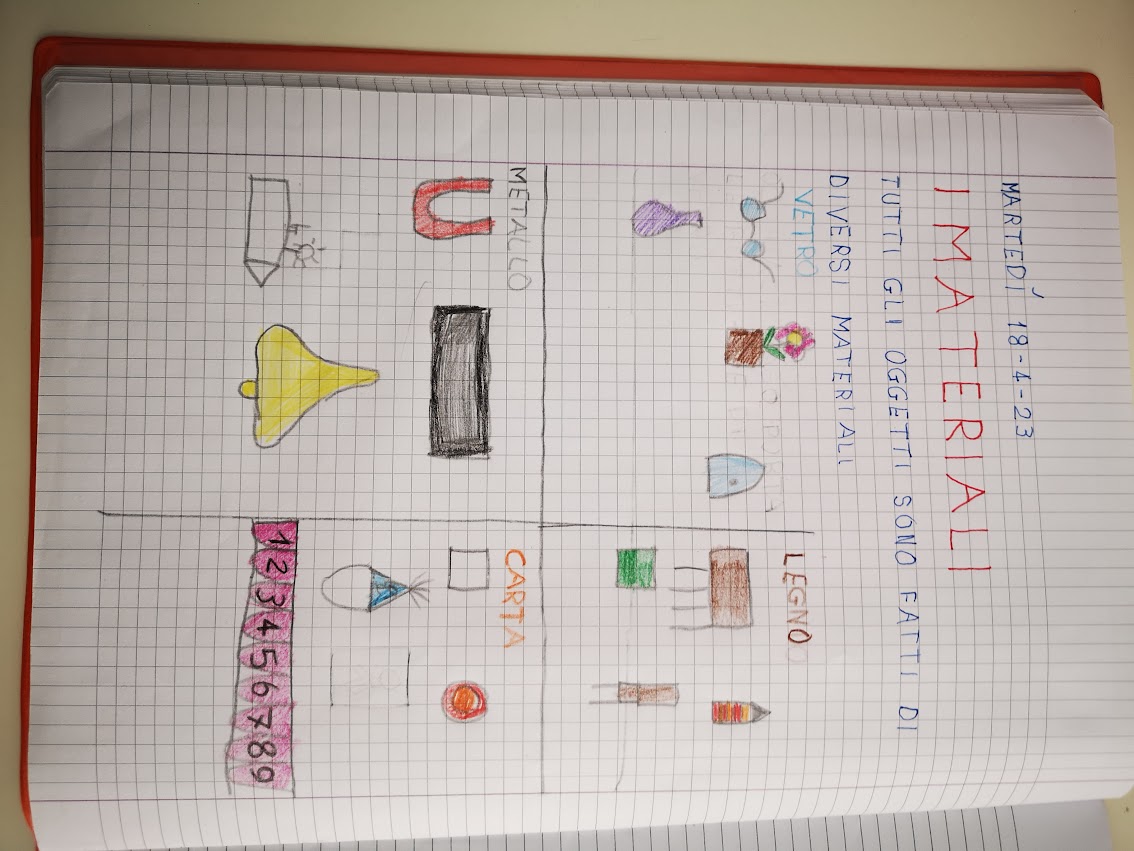 MARTEDÍ 18-4-23
I MATERIALI
TUTTI GLI OGGETTI SONO FATTI DI
DIVERSI MATERIALI
VETRO
LEGNO
METALLO
CARTA
1 2 3 4 5 6 7 8 9